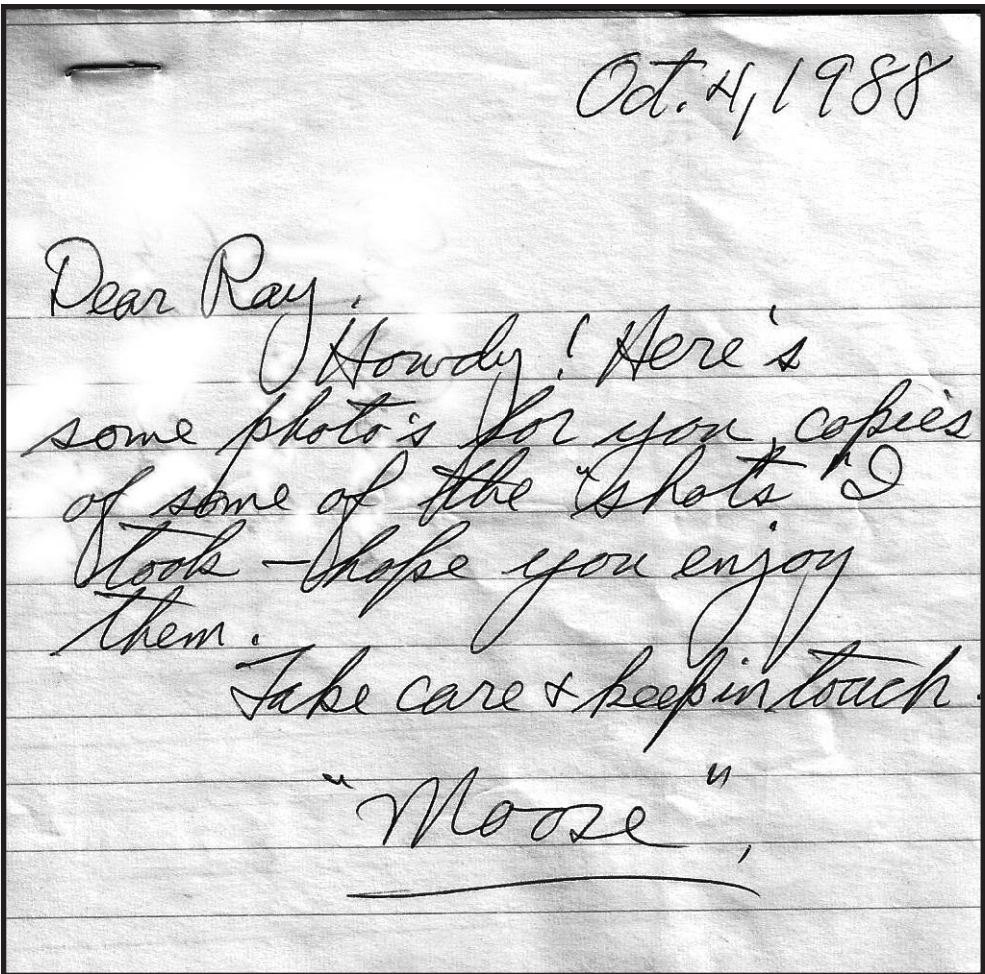 Oct. 4, 1988
Dear Ray,
Howdy! Here's
some photo's for you, copies
of some of the "shots" I
took – hope you enjoy
them.
Take care & keep in touch.
"Moose",